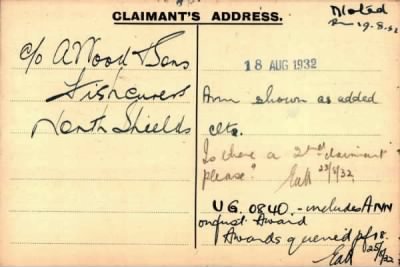 CLAIMANT'S ADDRESS.
Noted
19.8.32
c/o A Wood & Sons
Fishcurers
North Shields
18 AUG 1932
Ann shown as added
clts.
Is there a 2nd claimant
please?
23/8/32
UG. 0840. - includes ANN
on first Award
Awards queried pf 18.
25/8/32